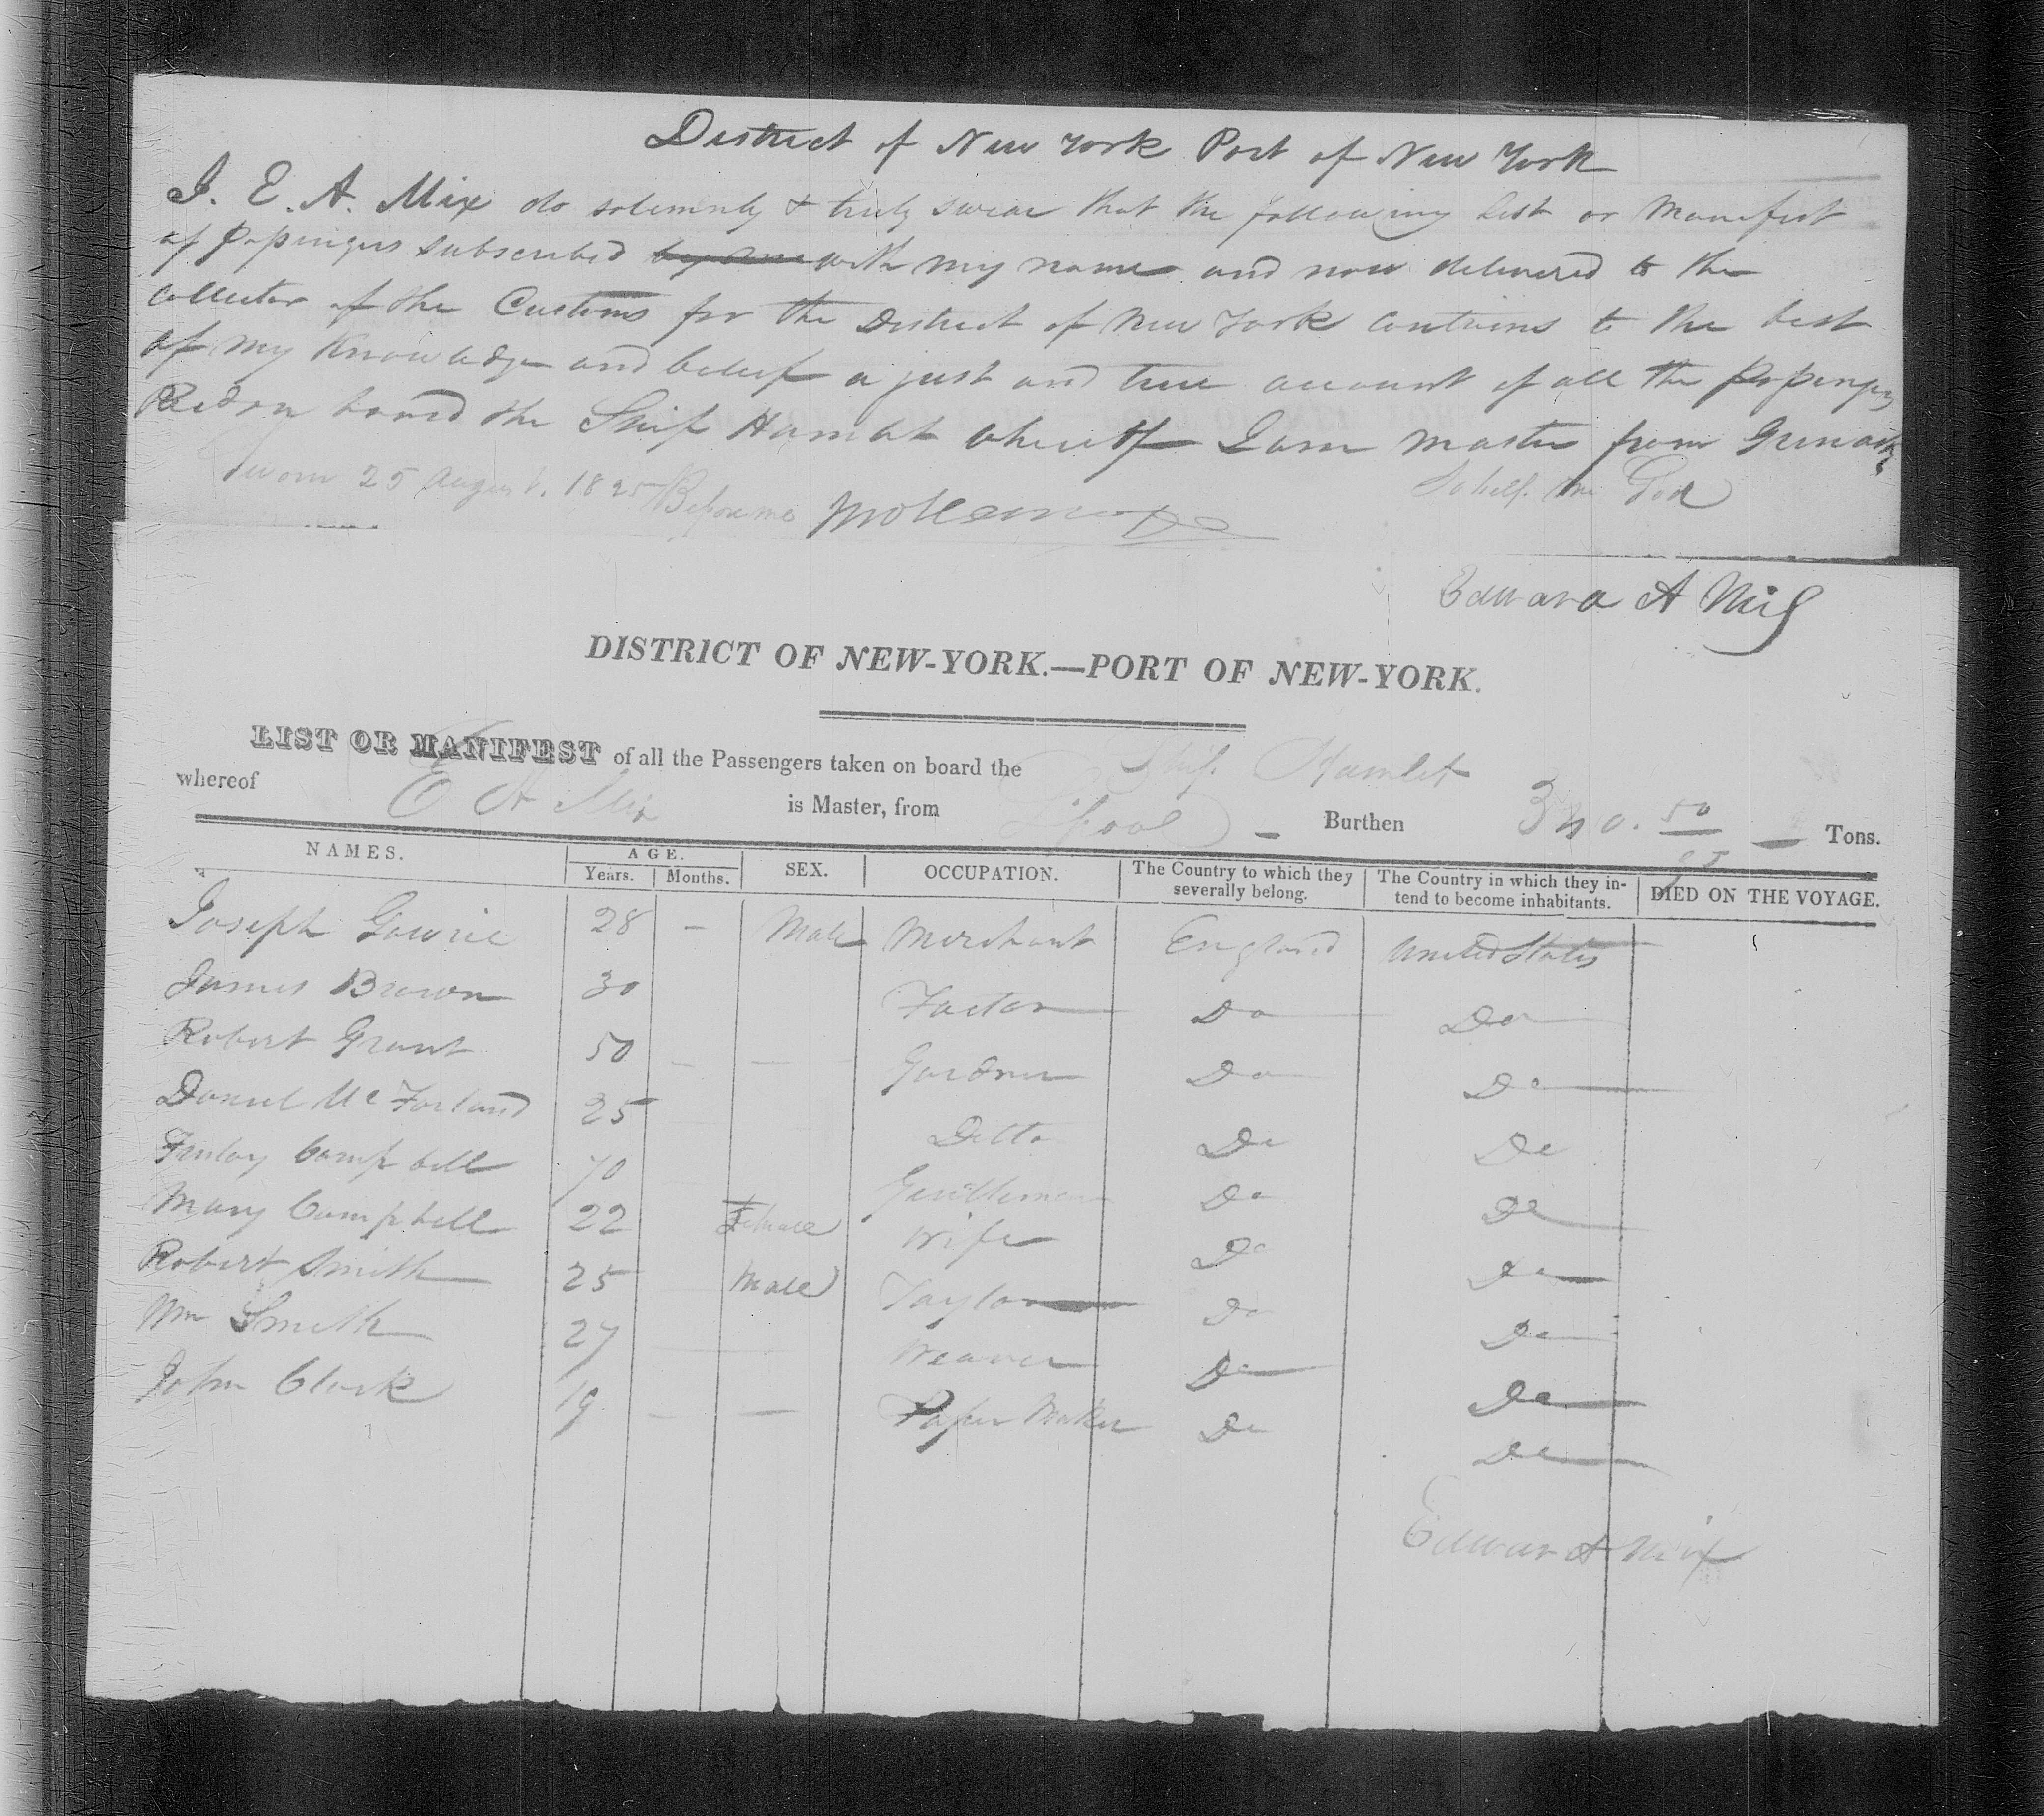 District of New York Port of New York
I. E. A. Mix do solemnly & truly swear that the following List or Manifest
of Passengers subscribed by me with my name and now delivered to the
Collector of the Customs for the District of New York contains to the best
of my Knowledge and belief a just and true account of all the Passengers
on board the Ship Hamlet whereof I am master from
So help me God
Sworn 25 August. 1825 Before me
Edward A Mix
DISTRICT OF NEW-YORK.—PORT OF NEW-YORK.
LIST OR MANIFEST of all the Passengers taken on board the Ship Hamlet
whereof E A Mix is Master, from Lpool Burthen 340. 50/95 Tons.
NAMES. AGE. Years. Months. SEX. OCCUPATION. The Country to which they severally belong. The Country in which they intend to become inhabitants. DIED ON THE VOYAGE.
Joseph Gowrie 28 – Male Merchant England United States
James Brown 30 Factor Do Do
Robert Grant 50 – — Gardner Do Do
Daniel McFarland 25 Ditto Do Do
Finlay Campbell 70 Gentleman Do Do
Mary Campbell 22 Female Wife Do Do
Robert Smith 25 Male Taylor Do Do
Wm Smith 27 Weaver Do Do
John Clark 19 – — Paper Maker Do Do
Edward A Mix